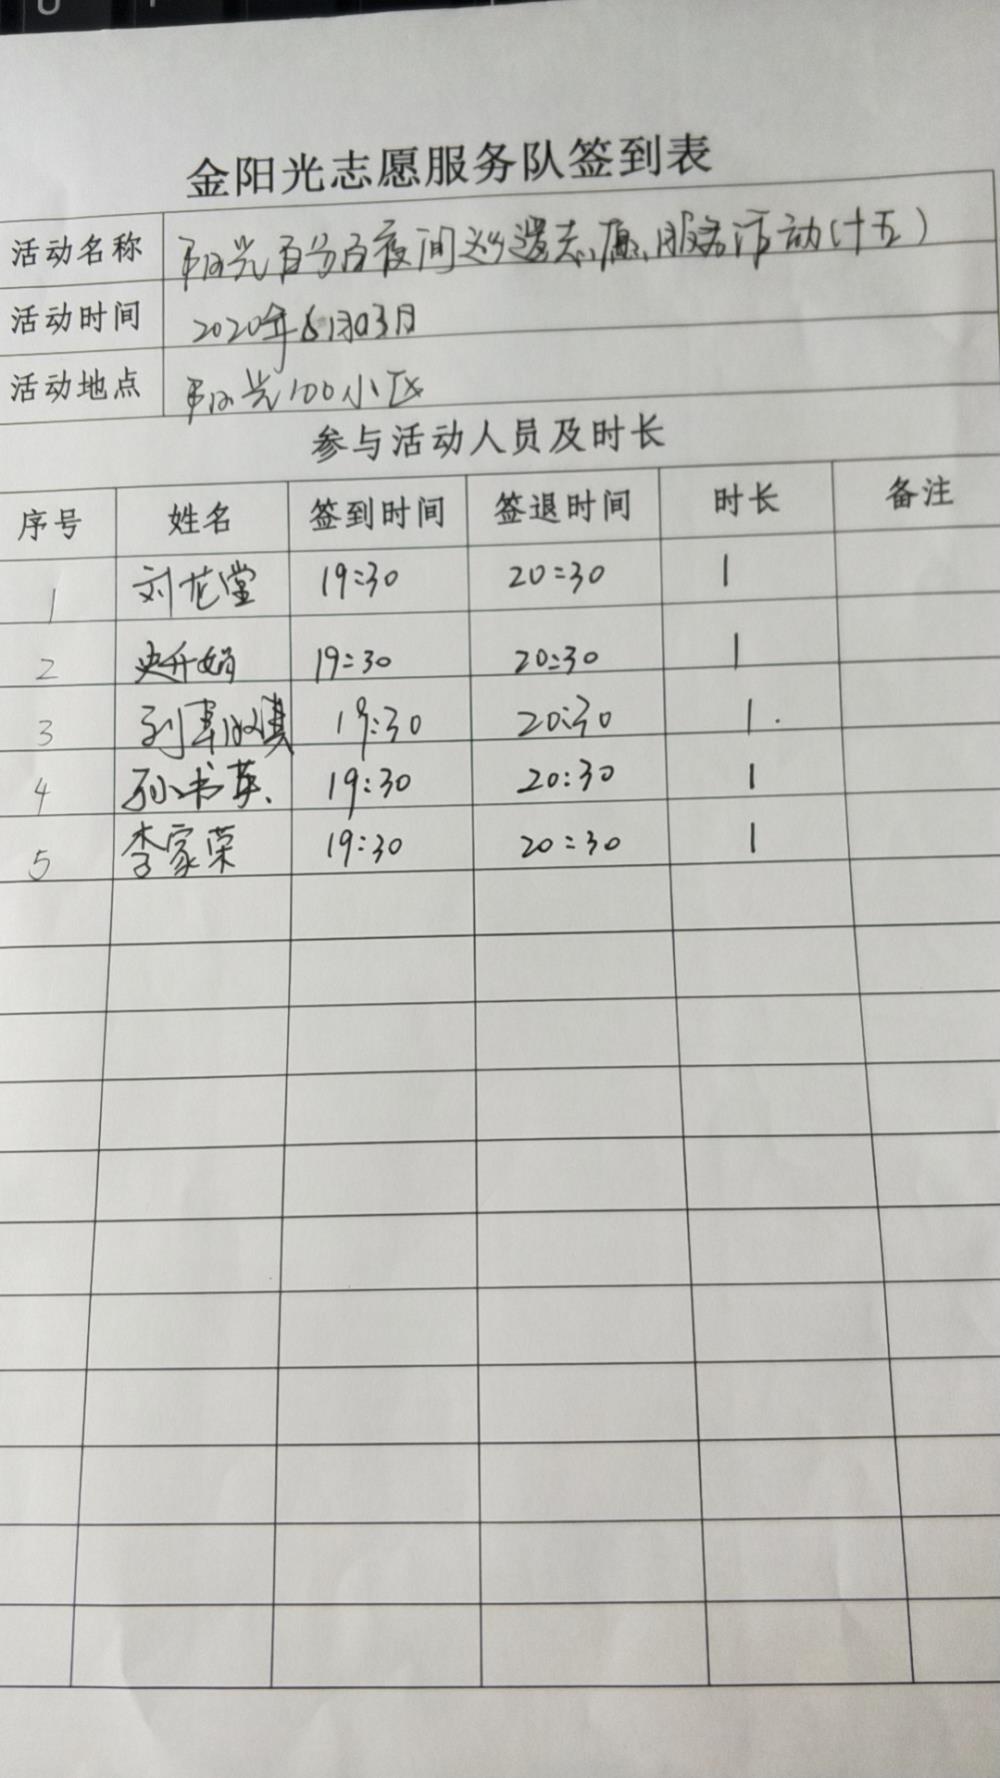 金阳光志愿服务队签到表
活动名称 阳光百分百夜间巡逻志愿服务活动(十五)
活动时间 2020年6月03日
活动地点 阳光100小区
参与活动人员及时长
序号 姓名 签到时间 签退时间 时长 备注
1 刘花堂 19:30 20:30 1
2 史升娟 19:30 20:30 1
3 19:30 20:30 1
4 孙书英 19:30 20:30 1
5 李家荣 19:30 20:30 1